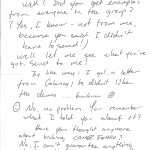 Well! Did you get energies
from everyone in the group?
? Yes, I know - not from me,
because you said I didn't
have to send!
Well let me see what you've
got. Send to me!
By the way, I got a letter
from
to
the demo -
No, no problem. You remember
what I told you about it?
Have you thought anymore
about
No, I can't guarantee anything,